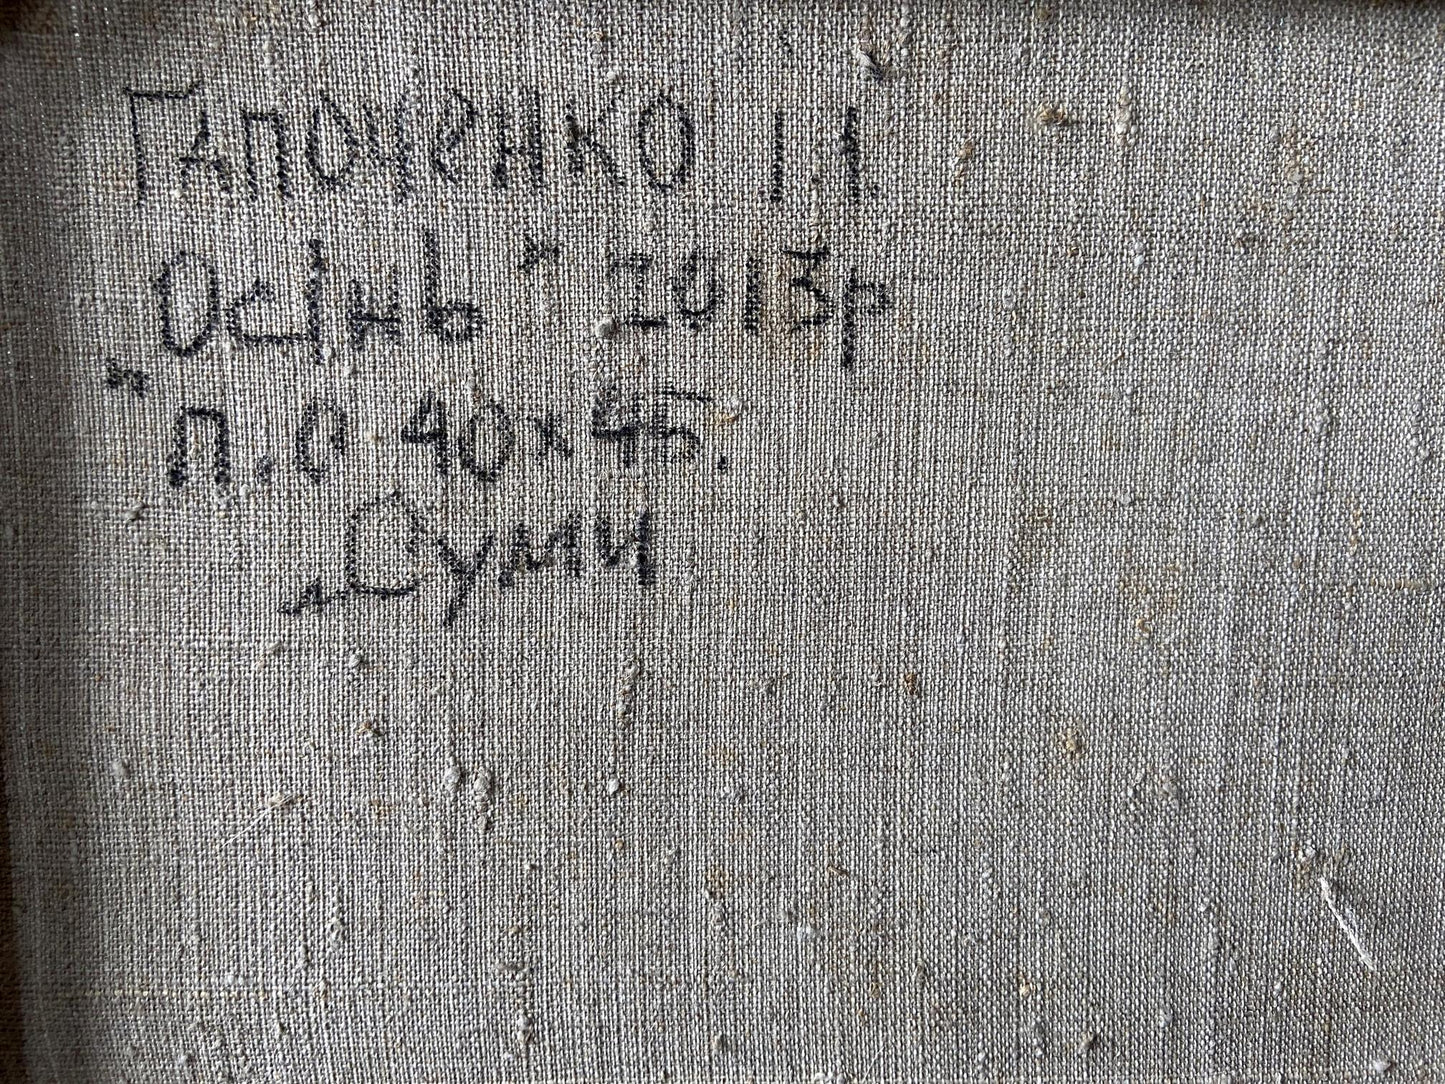 Гапоченко І.І.
„Осінь" 2013р
п.о 40х45.
м.Суми